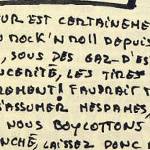 UR EST CERTAINEME
U ROCK'N ROLL DEPUIS
, SOUS DES GAZ-D'ES
NCERITÉ, LES TIRES
REMONT! FAUDRAIT
S'ASSUMER MESDAMES,
NOUS BOYCOTTONS
NCHÉ, LAISSEZ DONC